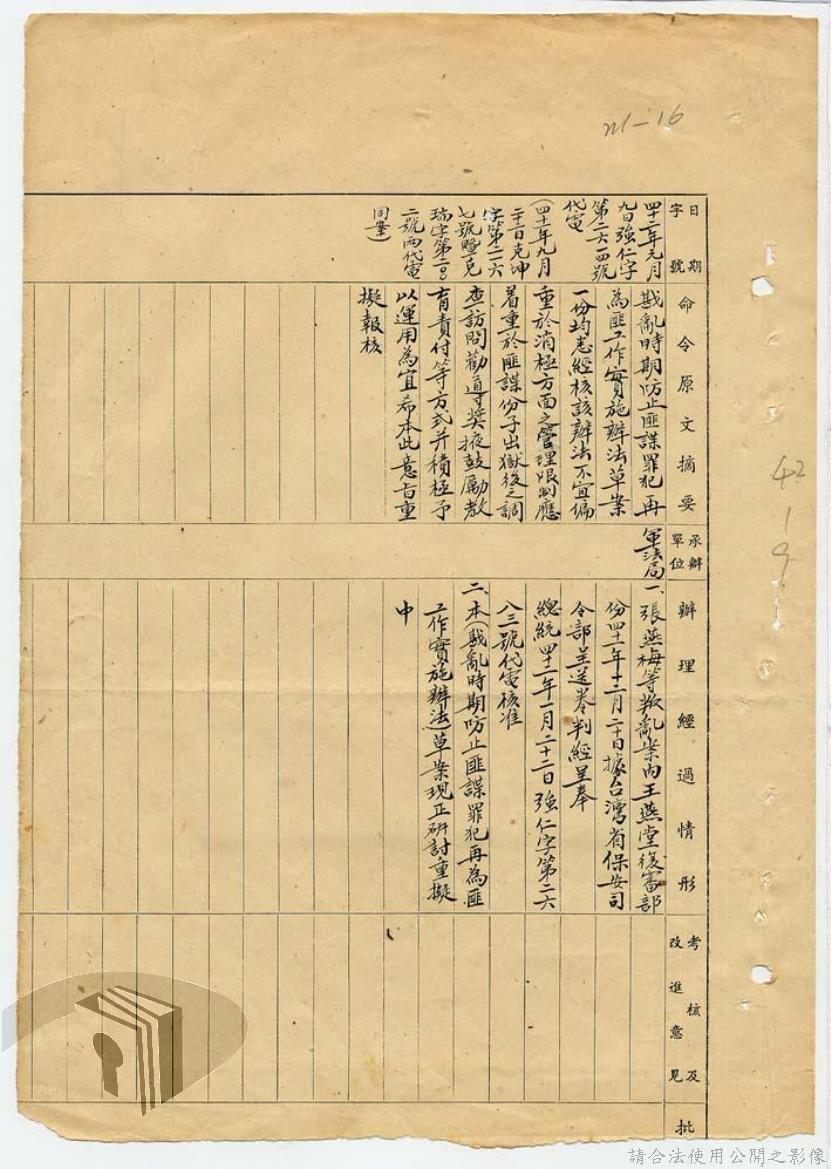 m-16
42-1-9
日期
字號
四十二年元月
九日強仁字
第二六一四號
代電
(四十一年九月
二十二日克坤
字第二一六
七號暨克
瑞字第二〇
二號兩代電
同案)
命令原文摘要
戡亂時期防止匪諜罪犯再
為匪工作實施辦法草案
一份均悉經核該辦法不宜偏
重於消極方面之管理限制應
着重於匪諜份子出獄後之調
查訪問勸導獎掖鼓勵教
育責付等方式并積極予
以運用為宜希本此意旨重
擬報核
承辦
單位
軍法局
辦理經過情形
一、張燕梅等叛亂案內王燕堂復審部
份四十一年十二月二十日據台灣省保安司
令部呈送卷判經呈奉
總統四十二年一月二十二日強仁字第二六
八三號代電核准
二、本(戡亂時期防止匪諜罪犯再為匪
工作實施辦法)草案現正研討重擬
中
考核及
改進意見
批
請合法使用公開之影像